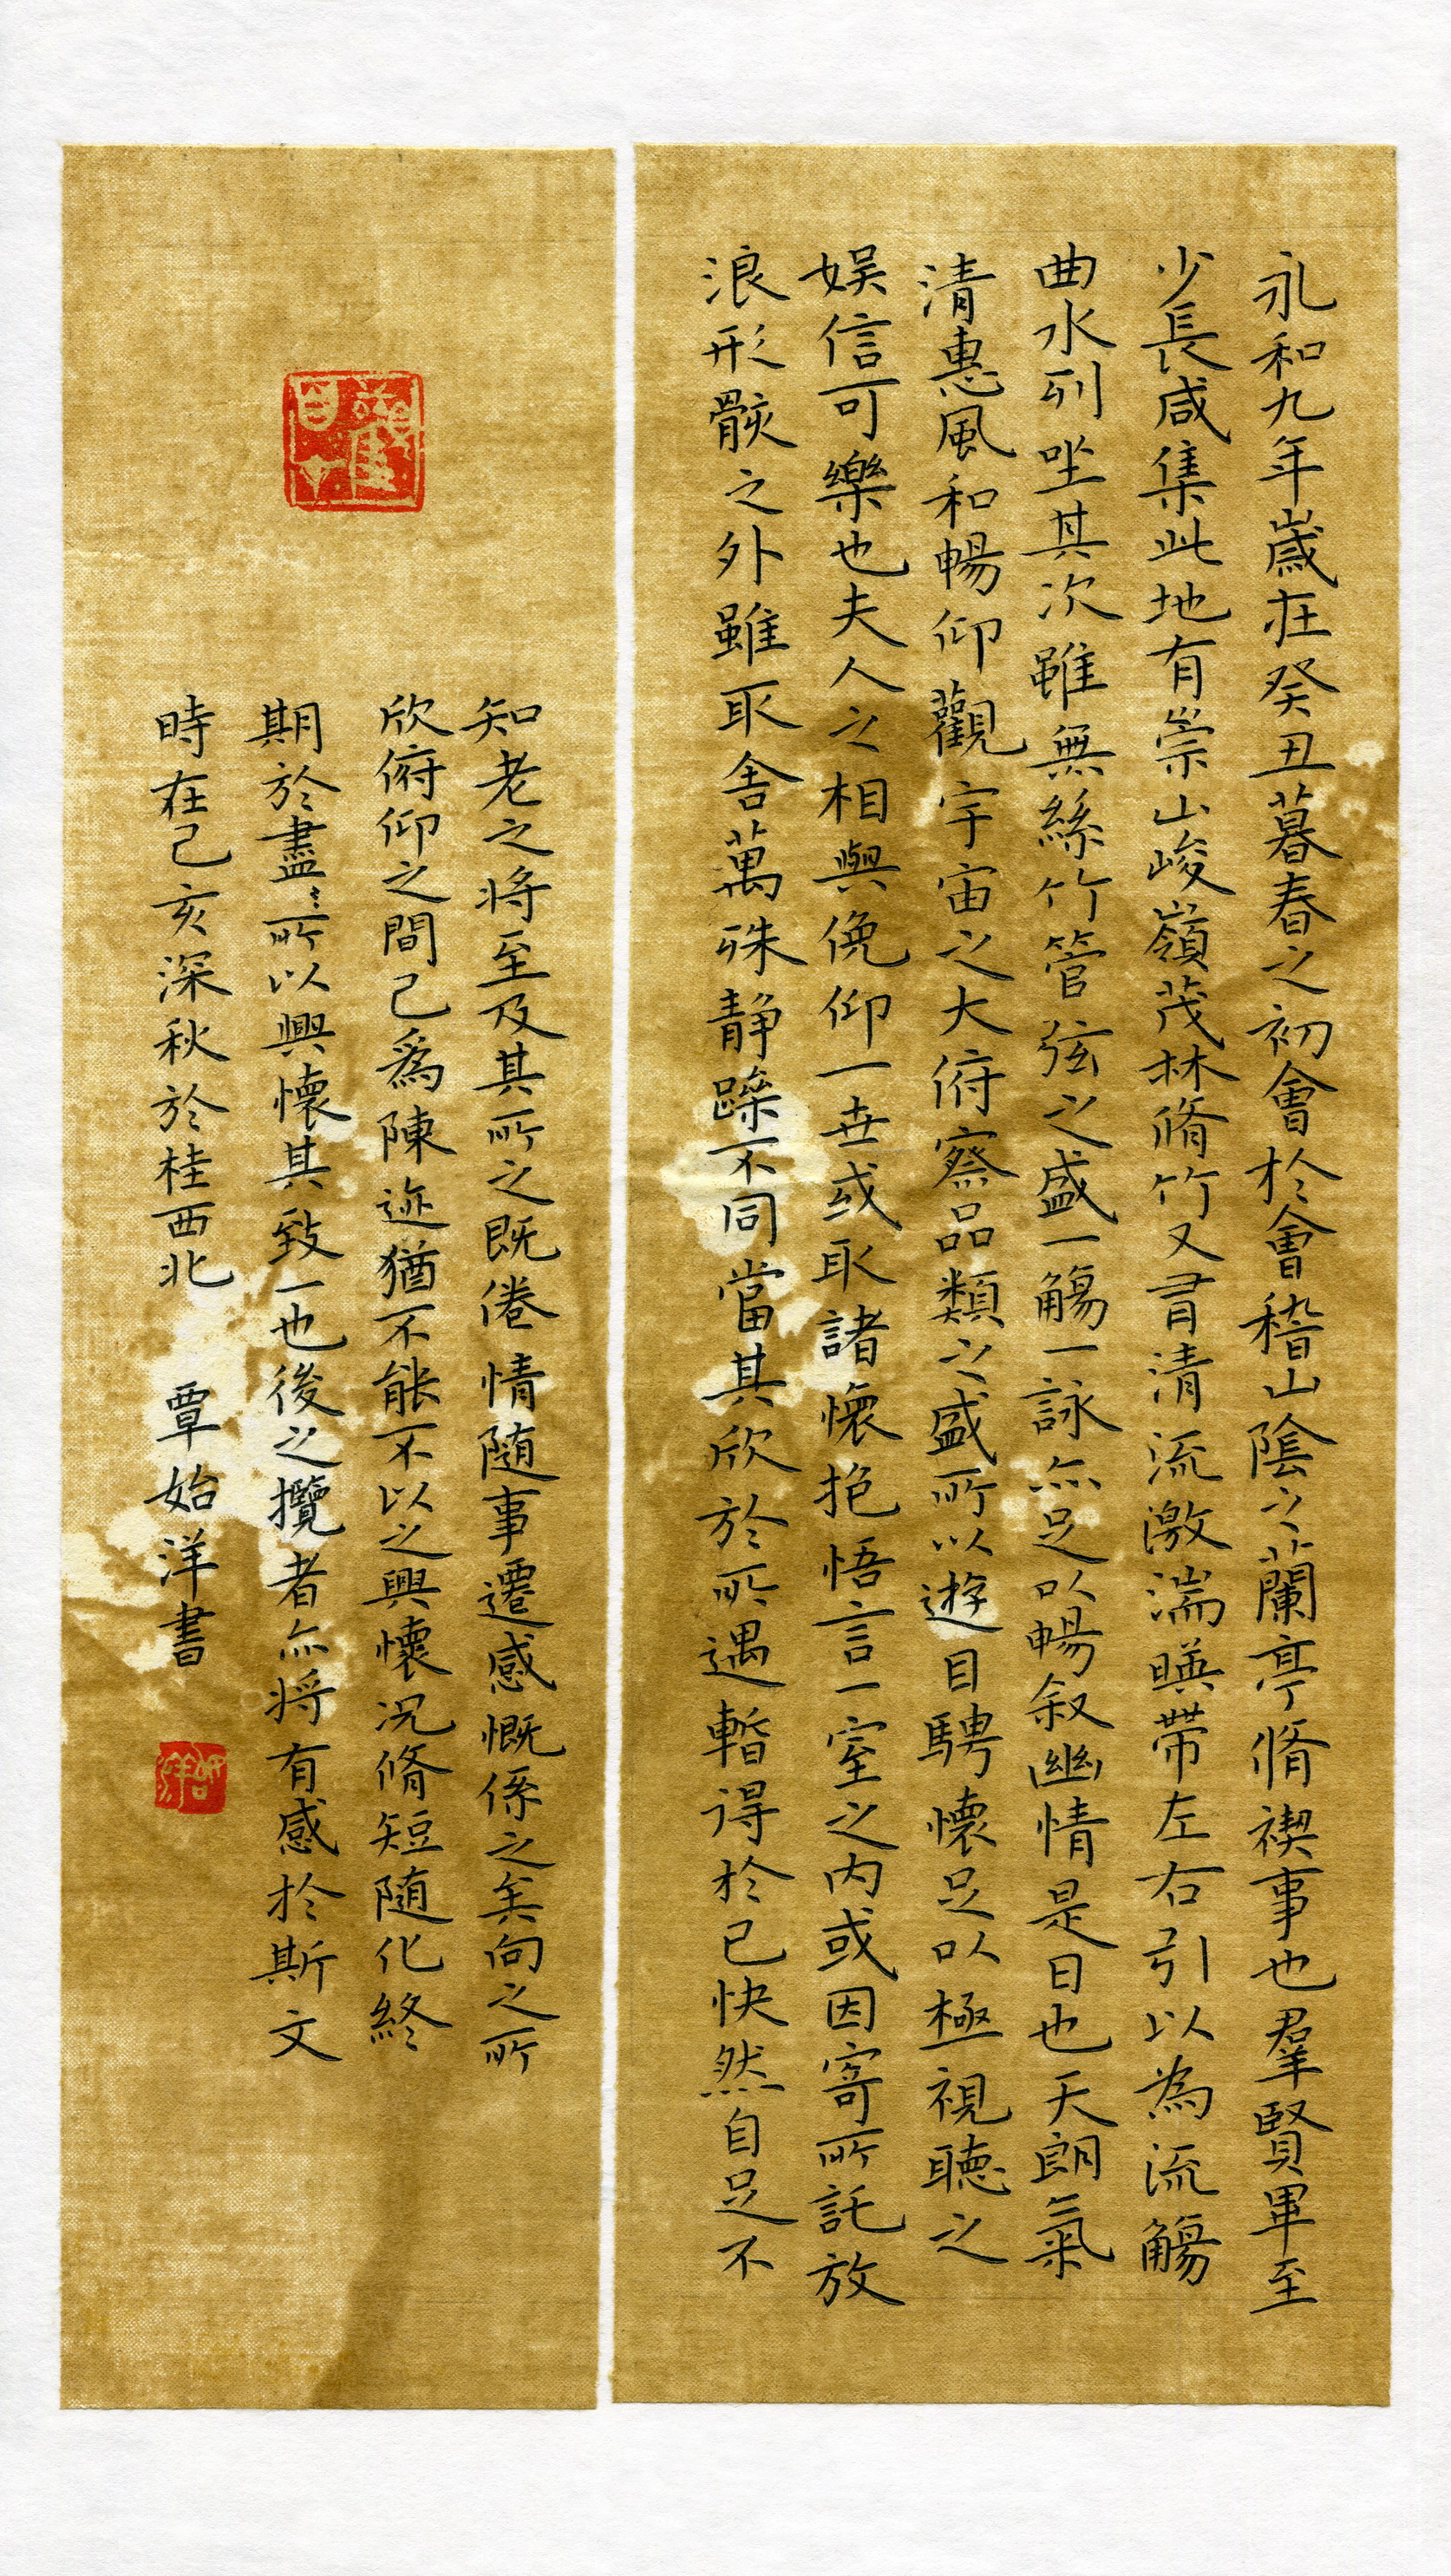 永和九年歲在癸丑暮春之初會於會稽山陰之蘭亭脩禊事也羣賢畢至
少長咸集此地有崇山峻嶺茂林脩竹又有清流激湍暎帶左右引以為流觴
曲水列坐其次雖無絲竹管弦之盛一觴一詠亦足以暢叙幽情是日也天朗氣
清惠風和暢仰觀宇宙之大俯察品類之盛所以遊目騁懷足以極視聽之
娛信可樂也夫人之相與俛仰一世或取諸懷抱悟言一室之內或因寄所託放
浪形骸之外雖取舍萬殊静躁不同當其欣於所遇暫得於己快然自足不
知老之將至及其所之既倦情随事遷感慨係之矣向之所
欣俯仰之間已為陳迹猶不能不以之興懷況脩短随化終
期於盡〻所以興懷其致一也後之攬者亦将有感於斯文
時在己亥深秋於桂西北 覃始洋書